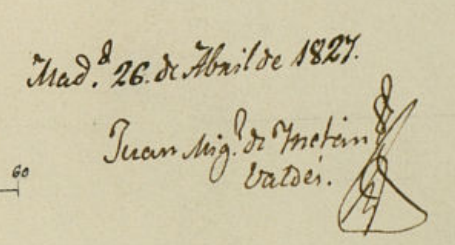 Mad.d 26. de Abril de 1827.
Juan Mig.l de Inclan
Valdés.
60